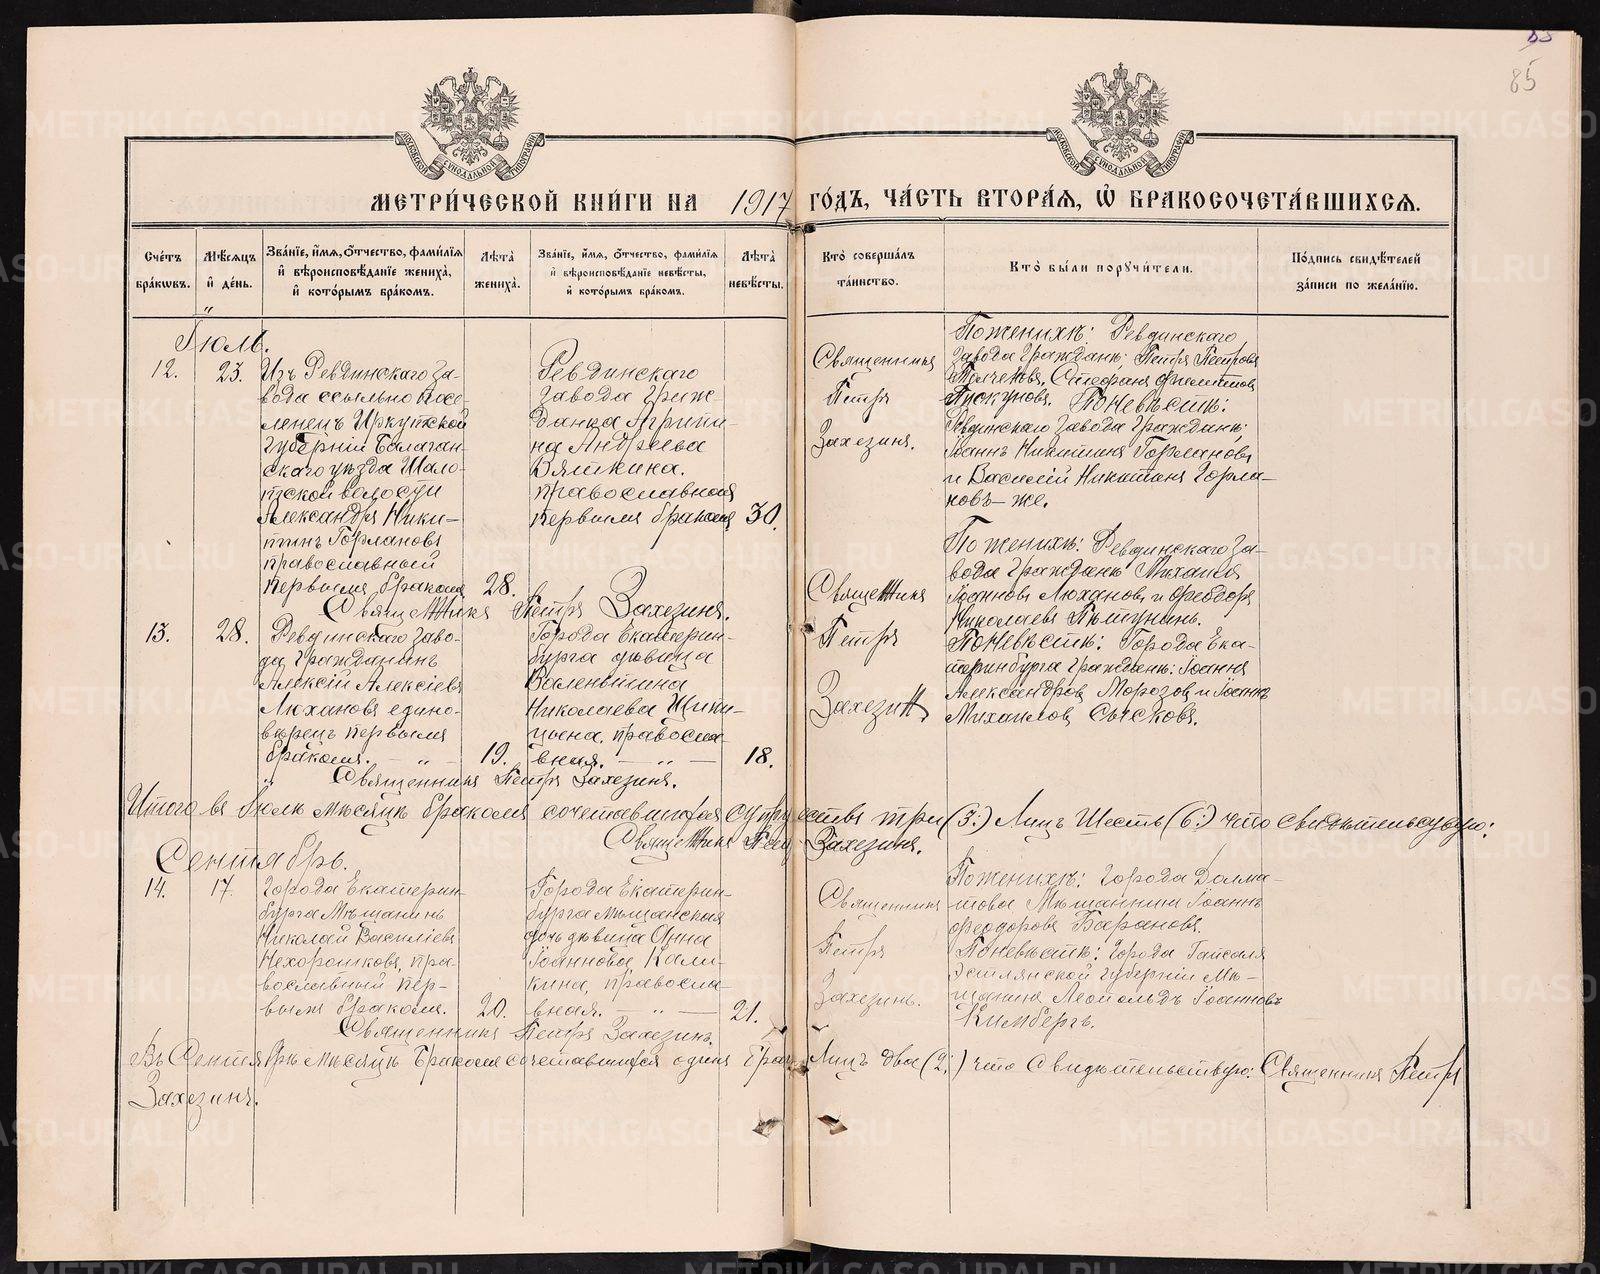 85
МЕТРИ́ЧЕСКОЙ КНИ́ГИ НА 1917 ГО́ДЪ, ЧА́СТЬ ВТОРА́Я, Ѡ БРАКОСОЧЕТА́ВШИХСЯ.
Сче́тъ бра́кѡвъ.
Мѣ́сяцъ и де́нь.
Зва́нїе, и́мя, ѻ́тчество, фами́лїя и вѣроисповѣ́данїе жениха̀, и кото́рымъ бра́комъ.
Лѣ́та жениха̀.
Зва́нїе, и́мя, ѻ́тчество, фами́лїя и вѣроисповѣ́данїе невѣ́сты, и кото́рымъ бра́комъ.
Лѣ́та невѣ́сты.
Кто̀ соверша́лъ та́инство.
Кто̀ бы́ли порꙋчи́тели.
По́дпись свидѣ́телей за́писи по жела́нїю.
Іюль.
12.
23.
Изъ Ревдинскаго за-
вода ссыльно посе-
ленецъ Иркутской
Губерніи Балаган-
скаго уѣзда Шало-
тской волости
Александръ Ники-
тинъ Горлановъ
православный
первымъ бракомъ
28.
Ревдинскаго
завода Граж-
данка Агрипи-
на Андреева
Вяткина.
православная
первымъ бракомъ
30.
Священникъ
Петръ
Захезинъ.
По женихѣ: Ревдинскаго
завода Граждане; Петръ Петровъ
Стефанъ Филипповъ
Пискуновъ. По невѣстѣ:
Ревдинскаго завода Граждане;
Іоаннъ Никитинъ Горлановъ
и Василій Никитинъ Горла-
новъ-же.
Священникъ Петръ Захезинъ.
13.
28.
Ревдинскаго заво-
да, Гражданинъ
Алексій Алексіевъ
Люхановъ едино-
вѣрецъ первымъ
бракомъ. — „ —
19.
Города Екатерин-
бурга дѣвица
Валентина
Николаева Щипи-
цына, правосла-
вная. — „ —
18.
Священникъ
Петръ
Захезинъ
По женихѣ: Ревдинскаго за-
вода Граждане Михаилъ
Іоанновъ Люхановъ и Феодоръ
Николаевъ Пѣтунинъ.
По невѣстѣ: Города Ека-
теринбурга граждане: Іоаннъ
Александровъ Морозовъ и Іоаннъ
Михаиловъ Сысковъ.
Священникъ Петръ Захезинъ.
Итого въ Іюлѣ мѣсяцѣ бракомъ сочетавшихся супружествъ три (3:) Лицъ Шесть (6:) что свидѣтельствую:
Священникъ Петръ Захезинъ.
Сентябрь.
14.
17.
Города Екатерин-
бурга Мѣщанинъ
Николай Василіевъ
Нехорошковъ, пра-
вославный пер-
вымъ бракомъ.
20.
Города Екатерин-
бурга мѣщанская
дочь дѣвица Анна
Іоаннова Кали-
кина, правосла-
вная. — „ —
21.
Священникъ
Петръ
Захезинъ.
По женихѣ: Города Далма-
това Мѣщанинъ Іоаннъ
Феодоровъ Барановъ.
По невѣстѣ: Города Гапсаля
Эстлянской губерніи Мѣ-
щанинъ Леопольдъ Іоанновъ
Кимбергъ.
Священникъ Петръ Захезинъ.
Въ Сентябрѣ мѣсяцѣ бракомъ сочетавшихся одинъ бракъ Лицъ два (2:) что свидѣтельствую: Священникъ Петръ
Захезинъ.
METRIKI.GASO-URAL.RU